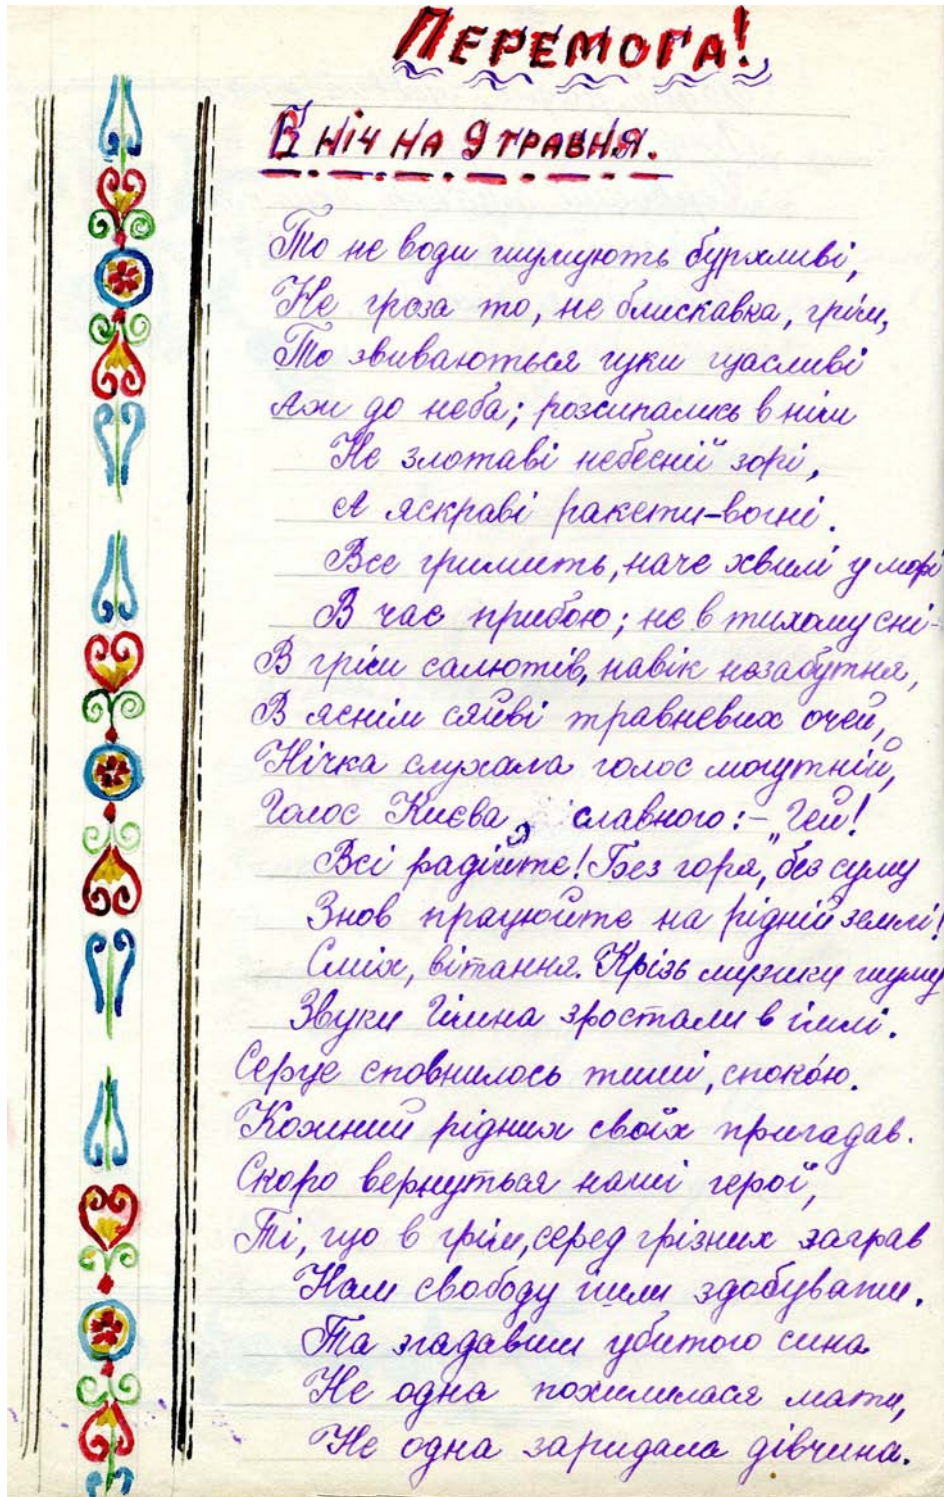 ПЕРЕМОГА!
В НІЧ НА 9 ТРАВНЯ.
То не води шумують бурхливі,
Не гроза то, не блискавка, грім,
То звиваються гуки щасливі
Аж до неба; розсипались в нім
Не злотаві небеснії зорі,
А яскраві ракети-вогні.
Все гримить, наче хвилі у морі
В час прибою; не в тихому сні-
В грім салютів, навік незабутня,
В яснім сяйві травневих очей,
Нічка слухала голос могутній,
Голос Києва славного: - „Гей!
Всі радійте! Без горя, без суму
Знов працюйте на рідній землі!"
Сміх, вітання. Крізь музики шуму
Звуки Гімна зростали в імлі.
Серце сповнилось тиші, спокою.
Кожний рідних своїх пригадав.
Скоро вернуться наші герої,
Ті, що в грім, серед грізних заграв
Нам свободу йшли здобувати.
Та згадавши убитого сина
Не одна похилилася мати,
Не одна заридала дівчина.